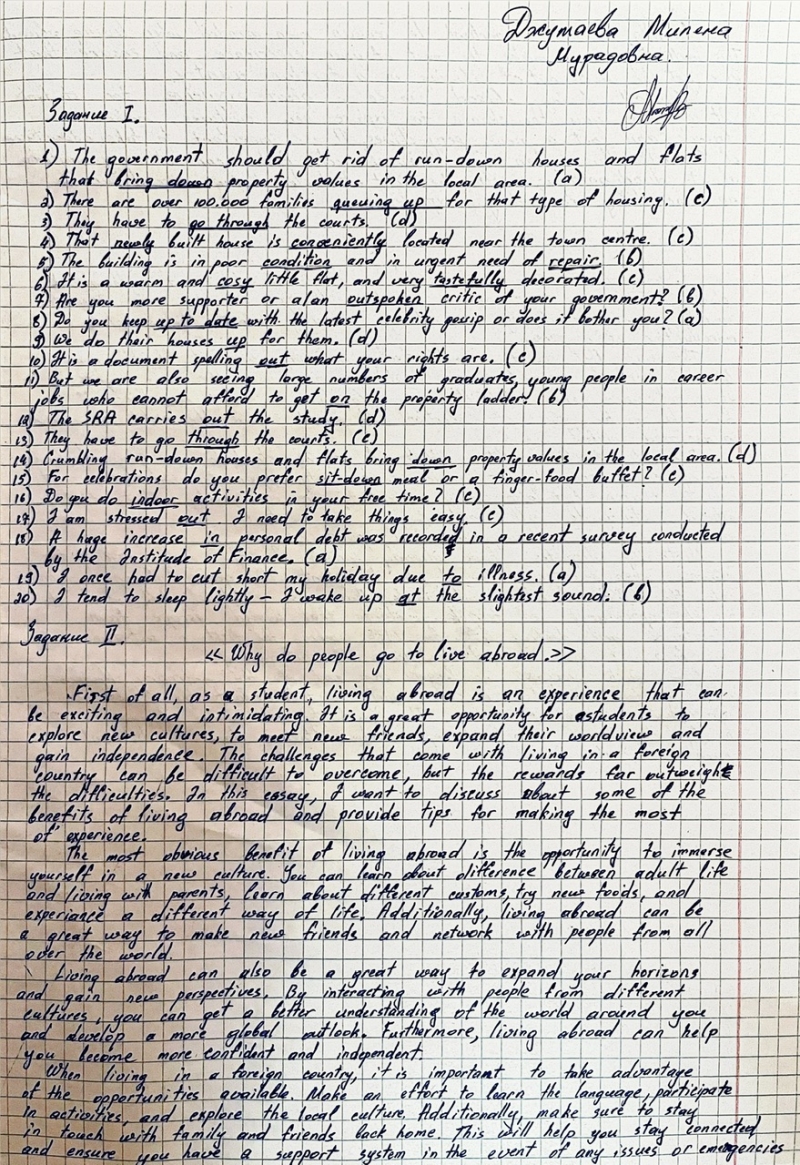 Джутаева Милена
Мурадовна.
Задание I.
1) The government should get rid of run-down houses and flats
that bring down property values in the local area. (a)
2) There are over 100.000 families queuing up for that type of housing. (c)
3) They have to go through the courts. (d)
4) That newly built house is conveniently located near the town centre. (c)
5) The building is in poor condition and in urgent need of repair. (b)
6) It is a warm and cosy little flat, and very tastefully decorated. (c)
7) Are you more supporter or a/an outspoken critic of your government? (b)
8) Do you keep up to date with the latest celebrity gossip or does it bother you? (a)
9) We do their houses up for them. (d)
10) It is a document spelling out what your rights are. (c)
11) But we are also seeing large numbers of graduates, young people in career
jobs who cannot afford to get on the property ladder. (b)
12) The SRA carries out the study. (d)
13) They have to go through the courts. (c)
14) Crumbling run-down houses and flats bring down property values in the local area. (d)
15) For celebrations do you prefer sit-down meal or a finger-food buffet? (c)
16) Do you do indoor activities in your free time? (c)
17) I am stressed out I need to take things easy. (c)
18) A huge increase in personal debt was recorded in a recent survey conducted
by the Institude of Finance. (a)
19) I once had to cut short my holiday due to illness. (a)
20) I tend to sleep lightly – I wake up at the slightest sound. (b)
Задание II.
<< Why do people go to live abroad.>>
First of all, as a student, living abroad is an experience that can
be exciting and intimidating. It is a great opportunity for students to
explore new cultures, to meet new friends, expand their worldview and
gain independence. The challenges that come with living in a foreign
country can be difficult to overcome, but the rewards far outweight
the difficulties. In this essay, I want to discuss about some of the
benefits of living abroad and provide tips for making the most
of experience.
The most obvious benefit of living abroad is the opportunity to immerse
yourself in a new culture. You can learn about difference between adult life
and living with parents, learn about different customs, try new foods, and
experiance a different way of life. Additionally, living abroad can be
a great way to make new friends and network with people from all
over the world.
Living abroad can also be a great way to expand your horizons
and gain new perspectives. By interacting with people from different
cultures, you can get a better understanding of the world around you
and develop a more global outlook. Furthermore, living abroad can help
you become more confident and independent.
When living in a foreign country, it is important to take advantage
of the opportunities available. Make an effort to learn the language, participate
in activities, and explore the local culture. Additionally, make sure to stay
in touch with family and friends back home. This will help you stay connected
and ensure you have a support system in the event of any issues or emergencies